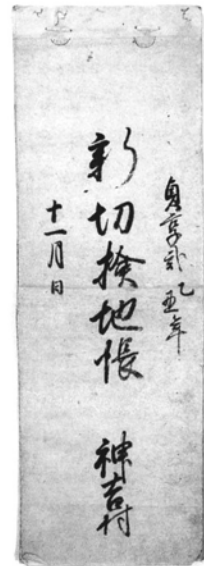 貞享弐乙丑年
新切検地帳 神吉村
十一月日